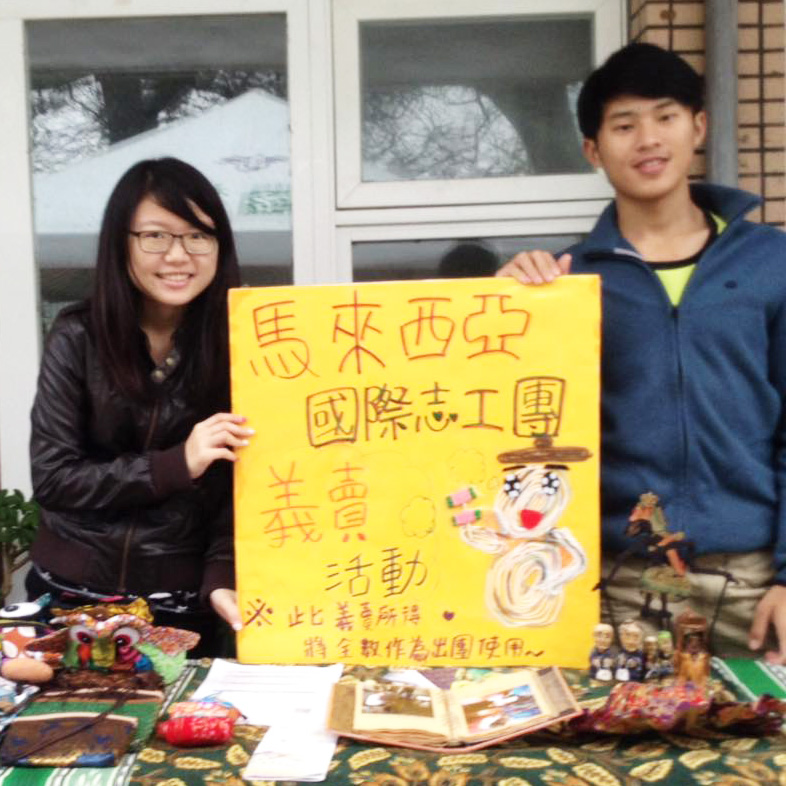 馬來西亞
國際志工團
義賣
活動
※此義賣所得
將全數作為出團使用~